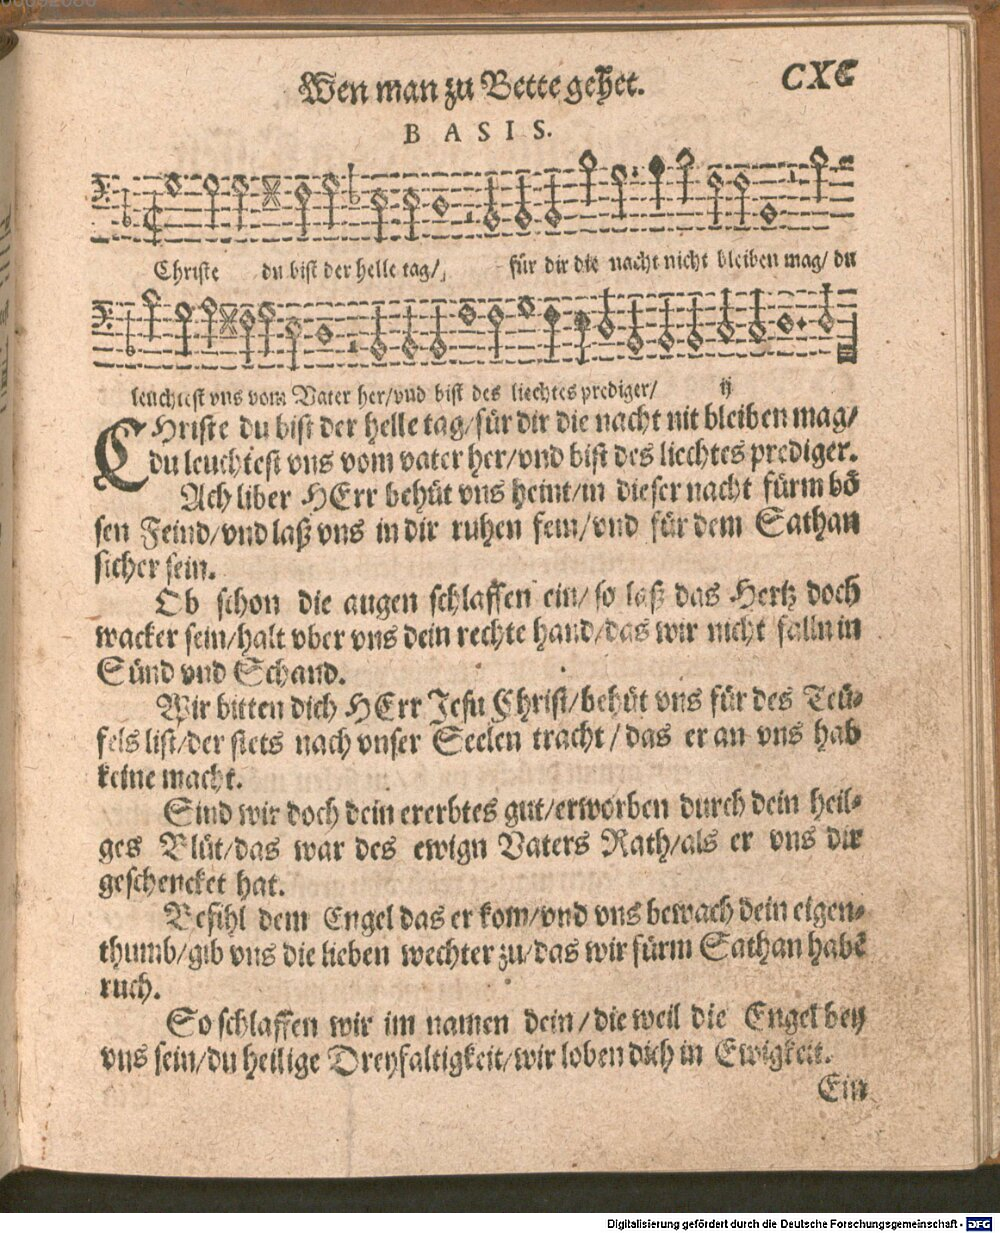 Wen man zu Bette gehet.
CXC
BASIS.
Christe du bist der helle tag/ für dir die nacht nicht bleiben mag/ du
leuchtest vns vom Vater her/vnd bist des liechtes prediger/ ij
CHriste du bist der helle tag/für dir die nacht nit bleiben mag/
du leuchtest vns vom vater her/vnd bist des liechtes prediger.
Ach liber HErr behüt vns heint/in dieser nacht fürm bö
sen Feind/vnd laß vns in dir ruhen fein/vnd für dem Sathan
sicher sein.
Ob schon die augen schlaffen ein/so laß das Hertz doch
wacker sein/halt vber vns dein rechte hand/das wir nicht falln in
Sünd vnd Schand.
Wir bitten dich HErr Jesu Christ/behüt vns für des Teü-
fels list/der stets nach vnser Seelen tracht/das er an vns hab
keine macht.
Sind wir doch dein ererbtes gut/erworben durch dein heil-
ges Blüt/das war des ewign Vaters Rath/als er vns dir
geschencket hat.
Befihl dem Engel das er kom/vnd vns bewach dein eigen-
thumb/gib vns die lieben wechter zu/das wir fürm Sathan habē
ruch.
So schlaffen wir im namen dein/die weil die Engel bey
vns sein/du heilige Dreyfaltigkeit/wir loben dich in Ewigkeit.
Ein
Digitalisierung gefördert durch die Deutsche Forschungsgemeinschaft - DFG